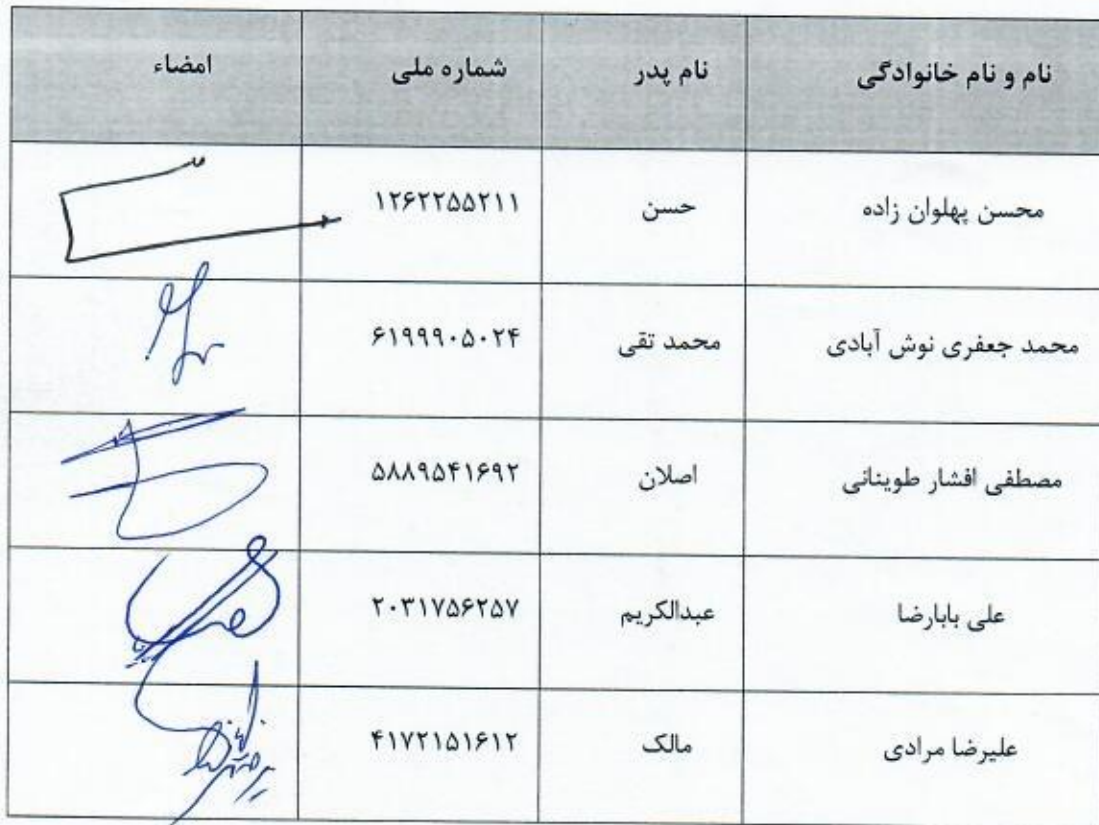 نام و نام خانوادگی نام پدر شماره ملی امضاء
محسن پهلوان زاده حسن ۱۲۶۲۲۵۵۲۱۱
محمد جعفری نوش آبادی محمد تقی ۶۱۹۹۹۰۵۰۲۴
مصطفی افشار طوینانی اصلان ۵۸۸۹۵۴۱۶۹۲
علی بابارضا عبدالکریم ۲۰۳۱۷۵۶۲۵۷
علیرضا مرادی مالک ۴۱۷۲۱۵۱۶۱۲